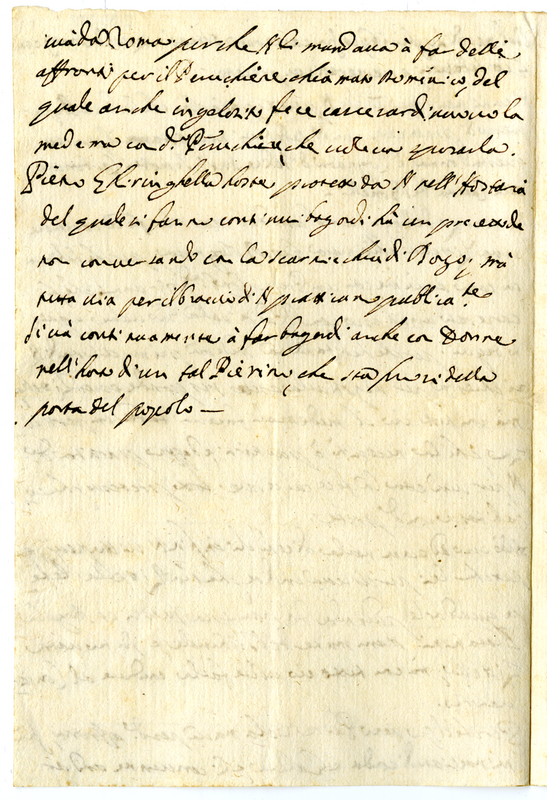 via da Roma perche N li mandava à far delli
affronti per il Peruchiere chiamato Domenico, del
quale anche ingelosito fece carcerar di nuovo la
medema con d.º Peruchiere che voleva sposarla.
Pietro Ghiringhello hoste protetto da N nell' Hostaria
del quale si fanno continui bagordi hà un precetto de
non conversando con la scarniechia di Borgo, mà
tutta via per il braccio di N praticano publica.te
Si và continuamente à far bagordi anche con Donne
nell' horto di un tal Pierino, che stà fuori della
porta del popolo —